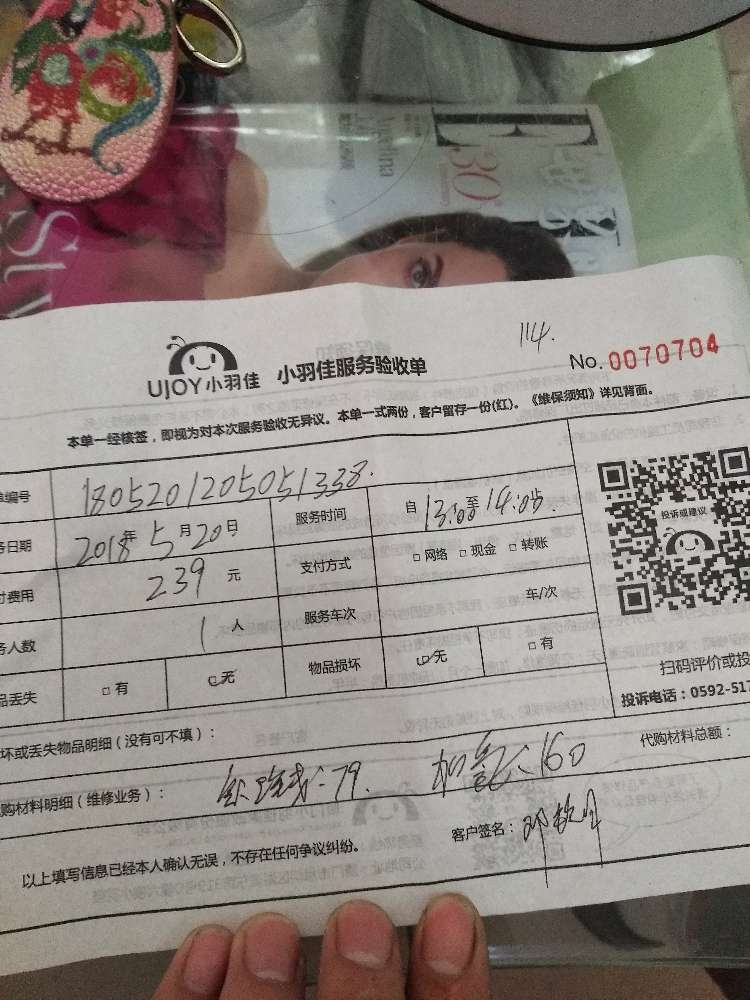 30
114.
UJOY小羽佳 小羽佳服务验收单 No. 0070704
本单一经核签，即视为对本次服务验收无异议。本单一式两份，客户留存一份(红)。《维保须知》详见背面。
单编号 180520120505 1338. 服务时间 自 13:00 至 14:05
务日期 2018年 5 月 20 日 支付方式 □ 网络 □ 现金 □ 转账
付费用 239 元 服务车次 车/次
务人数 1 人
品丢失 □ 有 □ 无 物品损坏 □ 无 □ 有
投诉或建议
扫码评价或投
投诉电话：0592-517
坏或丢失物品明细（没有可不填）：
购材料明细（维修业务）： 79. 加氨 160 代购材料总额：
以上填写信息已经本人确认无误，不存在任何争议纠纷。 客户签名：